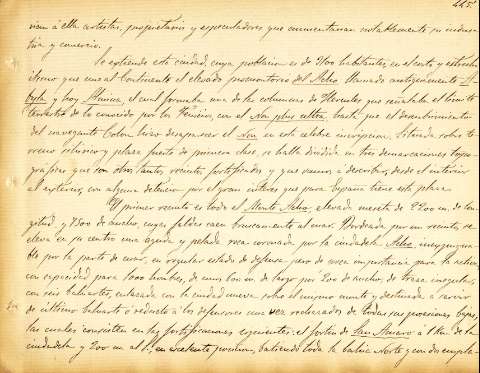 465
rien á ella artistas, propietarios y especuladores que aumentarian notablemente su indus-
tria y comercio.
Se extiende esta ciudad, cuya poblacion es de 9700 habitantes, en el corto y estrecho
itsmo que une al Continente el elevado promontorio del Acho llamado antiguamente A-
byla y hoy Almina, el cual formaba una de las columnas de Hercules que señalaba el limite
terrestre de lo conocido por los Fenicios, con el Non plus ultra, hasta que el descubrimiento
del navegante Colon hizo desaparecer el Non en esta celebre inscripcion. Situada sobre te-
rreno rocoso y plaza fuerte de primera clase, se halla dividida en tres demarcaciones topo-
graficas que son otros tantos recintos fortificados y que vamos á describir, desde el interior
al exterior, con alguna detencion por el gran interes que para España tiene esta plaza.
El primer recinto es todo el Monte Acho, elevada meseta de 2200 m. de lon-
gitud y 1300 de ancho, cuyas faldas caen bruscamente al mar. Bordeada por un recinto, se
eleva en su centro una aguda y pelada roca coronada por la ciudadela Acho, inexpugna-
ble por la parte de mar, en regular estado de defensa pero de escasa importancia para la activa,
con capacidad para 1600 hombres, de unos 600 m. de largo por 200 de ancho, de traza irregular,
con seis baluartes, enlazada con la ciudad nueva sobre el mismo monte y destinada á servir
de último baluarte ó reducto á los defensores una vez rechazados de todas sus posiciones bajas,
las cuales consisten en las fortificaciones siguientes: el fortin de San Amaro á 1 Km. de la
ciudadela y 200 m. al E., en excelente posicion, batiendo toda la bahia Norte y con dos empla-